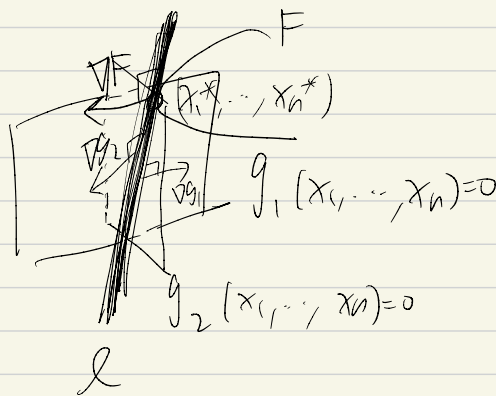 F
∇F
(x₁*, ..., xₙ*)
∇g₂
∇g₁
g₁(x₁, ..., xₙ)=0
g₂(x₁, ..., xₙ)=0
l